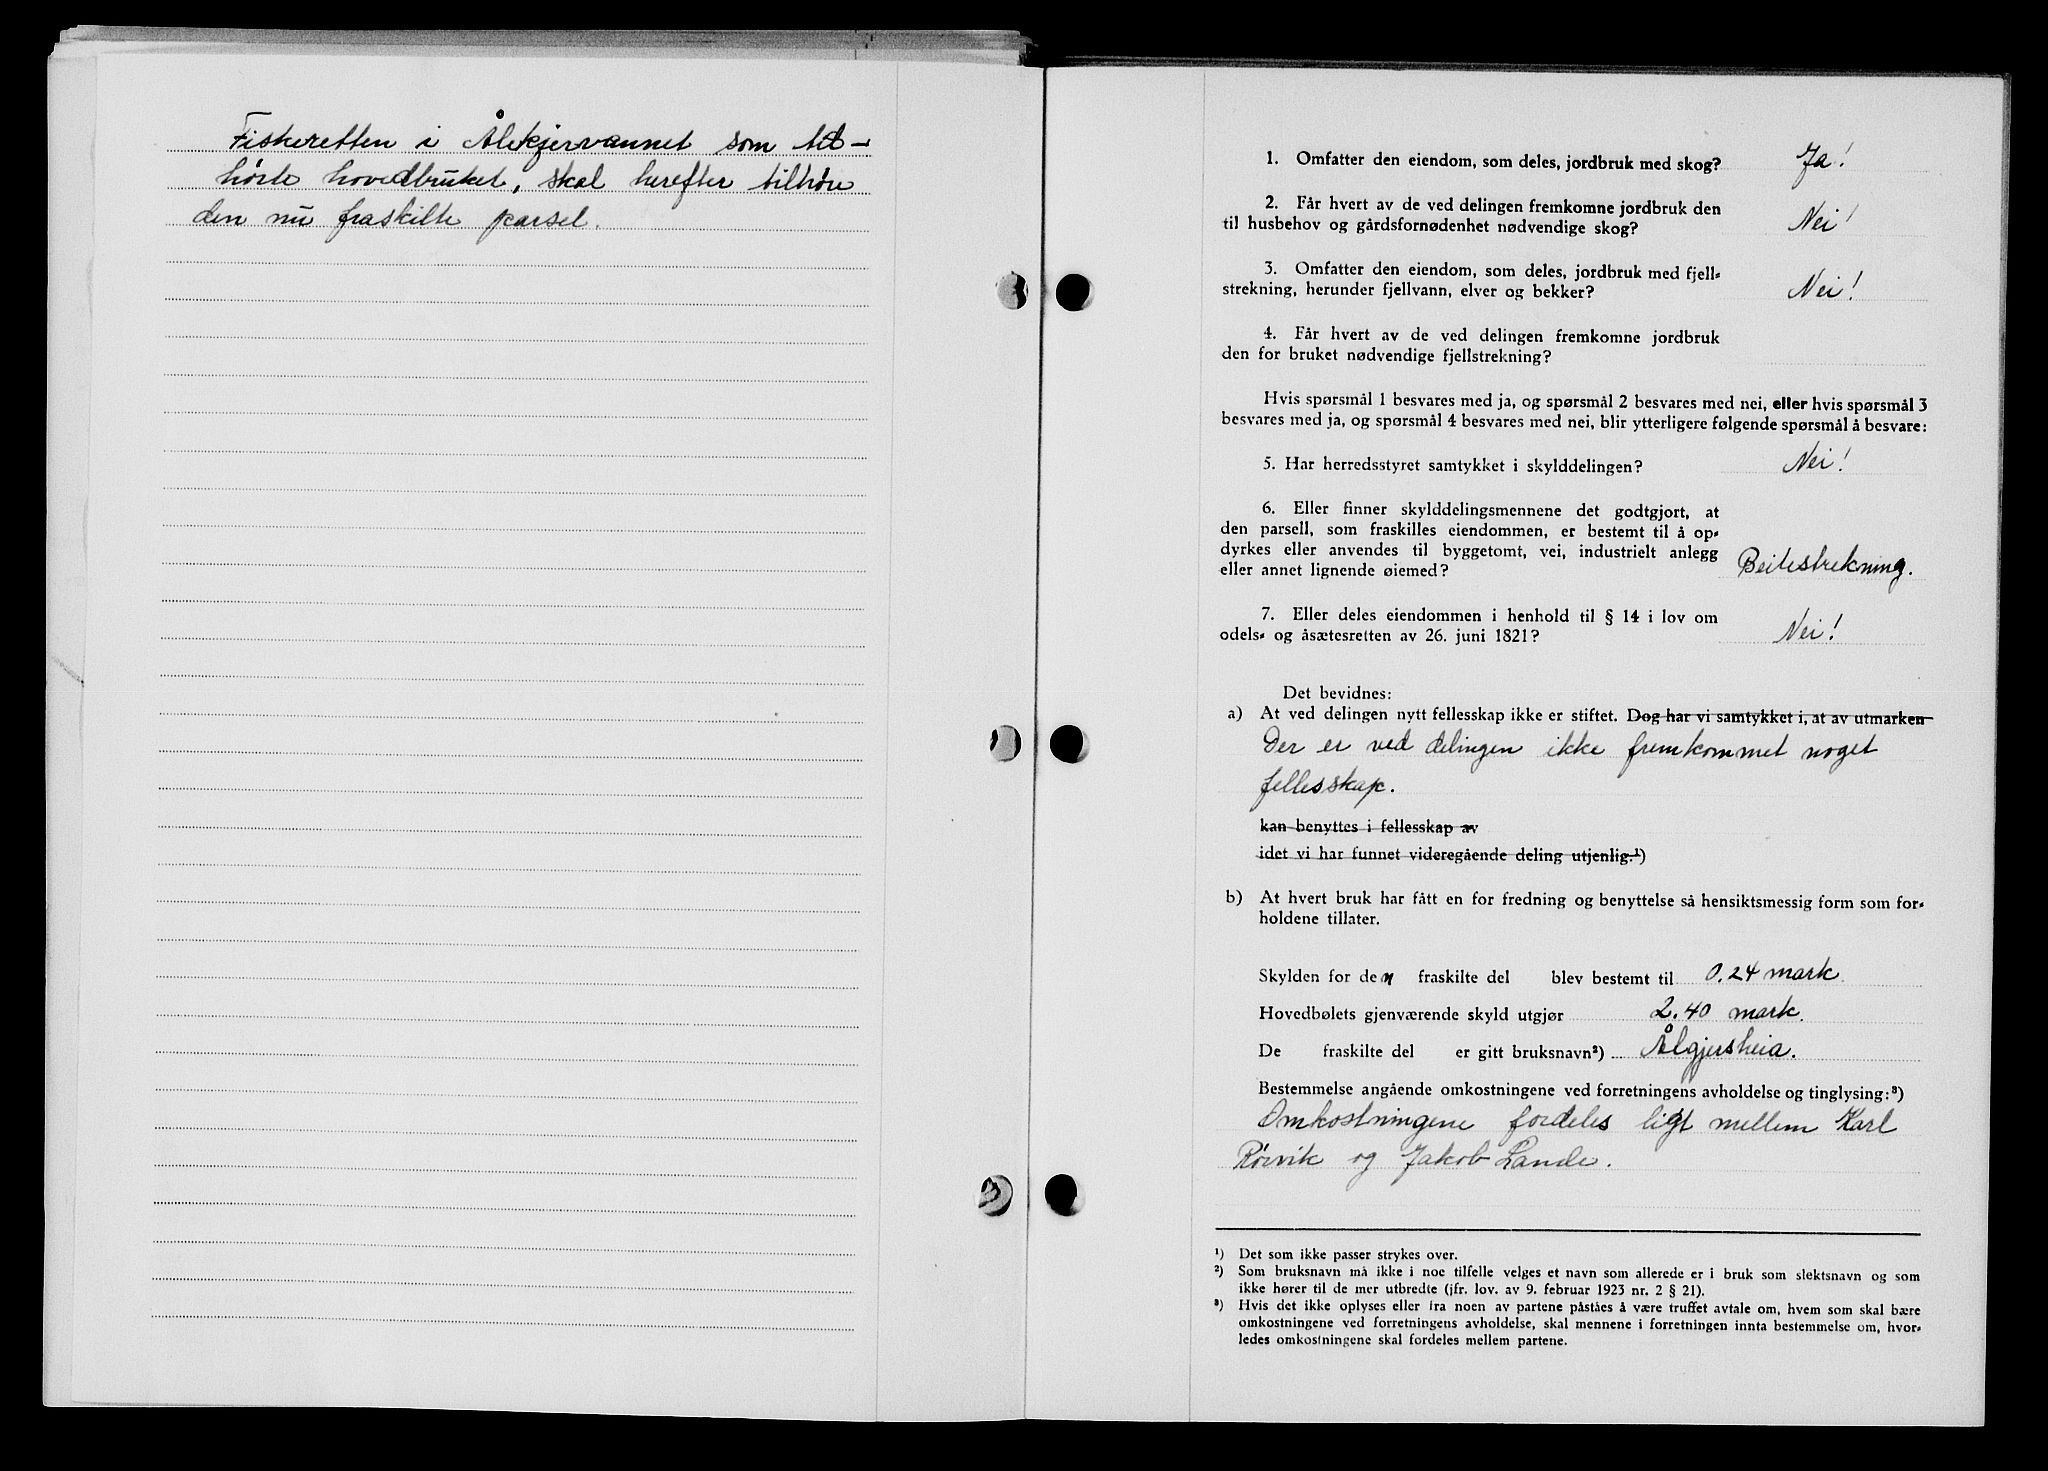 Fiskeretten i Ålekjervannet som til-
hörte hovedbruket, skal herefter tilhöre
den nu fraskilte parsel.
1. Omfatter den eiendom, som deles, jordbruk med skog? Ja!
2. Får hvert av de ved delingen fremkomne jordbruk den
til husbehov og gårdsfornødenhet nødvendige skog? Nei!
3. Omfatter den eiendom, som deles, jordbruk med fjell-
strekning, herunder fjellvann, elver og bekker? Nei!
4. Får hvert av de ved delingen fremkomne jordbruk
den for bruket nødvendige fjellstrekning?
Hvis spørsmål 1 besvares med ja, og spørsmål 2 besvares med nei, eller hvis spørsmål 3
besvares med ja, og spørsmål 4 besvares med nei, blir ytterligere følgende spørsmål å besvare:
5. Har herredsstyret samtykket i skylddelingen? Nei!
6. Eller finner skylddelingsmennene det godtgjort, at
den parsell, som fraskilles eiendommen, er bestemt til å op-
dyrkes eller anvendes til byggetomt, vei, industrielt anlegg
eller annet lignende øiemed? Beitestrekning.
7. Eller deles eiendommen i henhold til § 14 i lov om
odels- og åsætesretten av 26. juni 1821? Nei!
Det bevidnes:
a) At ved delingen nytt fellesskap ikke er stiftet. Dog har vi samtykket i, at av utmarken
Der er ved delingen ikke fremkommet noget
fellesskap.
kan benyttes i fellesskap av
idet vi har funnet videregående deling utjenlig.¹)
b) At hvert bruk har fått en for fredning og benyttelse så hensiktsmessig form som for-
holdene tillater.
Skylden for den fraskilte del blev bestemt til 0.24 mark.
Hovedbølets gjenværende skyld utgjør 2.40 mark.
De fraskilte del er gitt bruksnavn²) Ålgjersheia.
Bestemmelse angående omkostningene ved forretningens avholdelse og tinglysing:³)
Omkostningene fordeles ligt mellem Karl
Rörvik og Jakob Lande.
¹) Det som ikke passer strykes over.
²) Som bruksnavn må ikke i noe tilfelle velges et navn som allerede er i bruk som slektsnavn og som
ikke hører til de mer utbredte (jfr. lov. av 9. februar 1923 nr. 2 § 21).
³) Hvis det ikke oplyses eller fra noen av partene påståes å være truffet avtale om, hvem som skal bære
omkostningene ved forretningens avholdelse, skal mennene i forretningen innta bestemmelse om, hvor-
ledes omkostningene skal fordeles mellem partene.